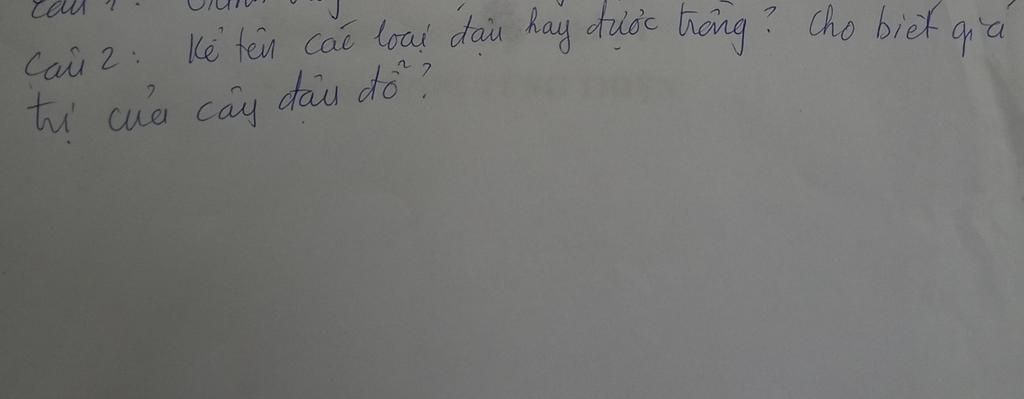 Câu 1:
Câu 2: Kể tên các loại đậu hay được trồng? Cho biết giá
trị của cây đậu đỗ?